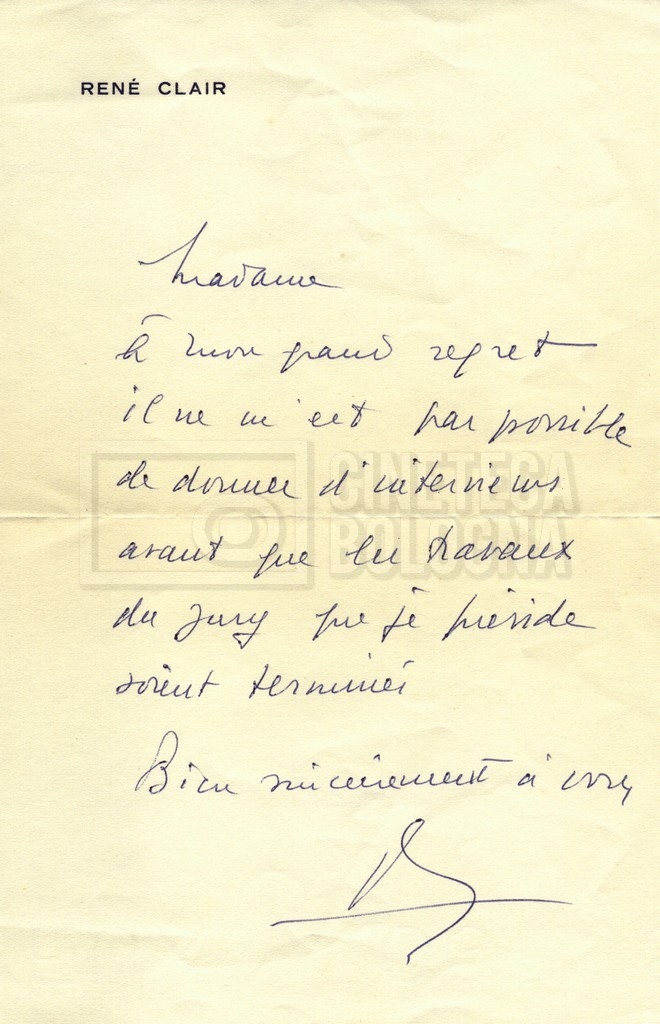 RENÉ CLAIR
Madame
à mon grand regret
il ne m'est pas possible
de donner d'interviews
avant que les travaux
du Jury que je préside
soient terminés
CINETECA
BOLOGNA
Bien sincèrement à vous